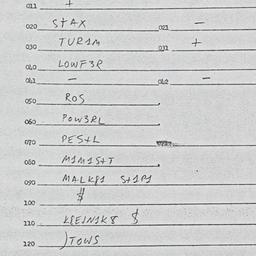 011 +
020 STAX 021 -
030 TUR1M 031 +
040 LOWF3R
041 - 042 -
050 ROS
060 POW3RL
070 PES+L
080 M1M1S+T
090 MALK81 S+1P1
100 $
110 K8E1N1K8 $
120 )TOWS